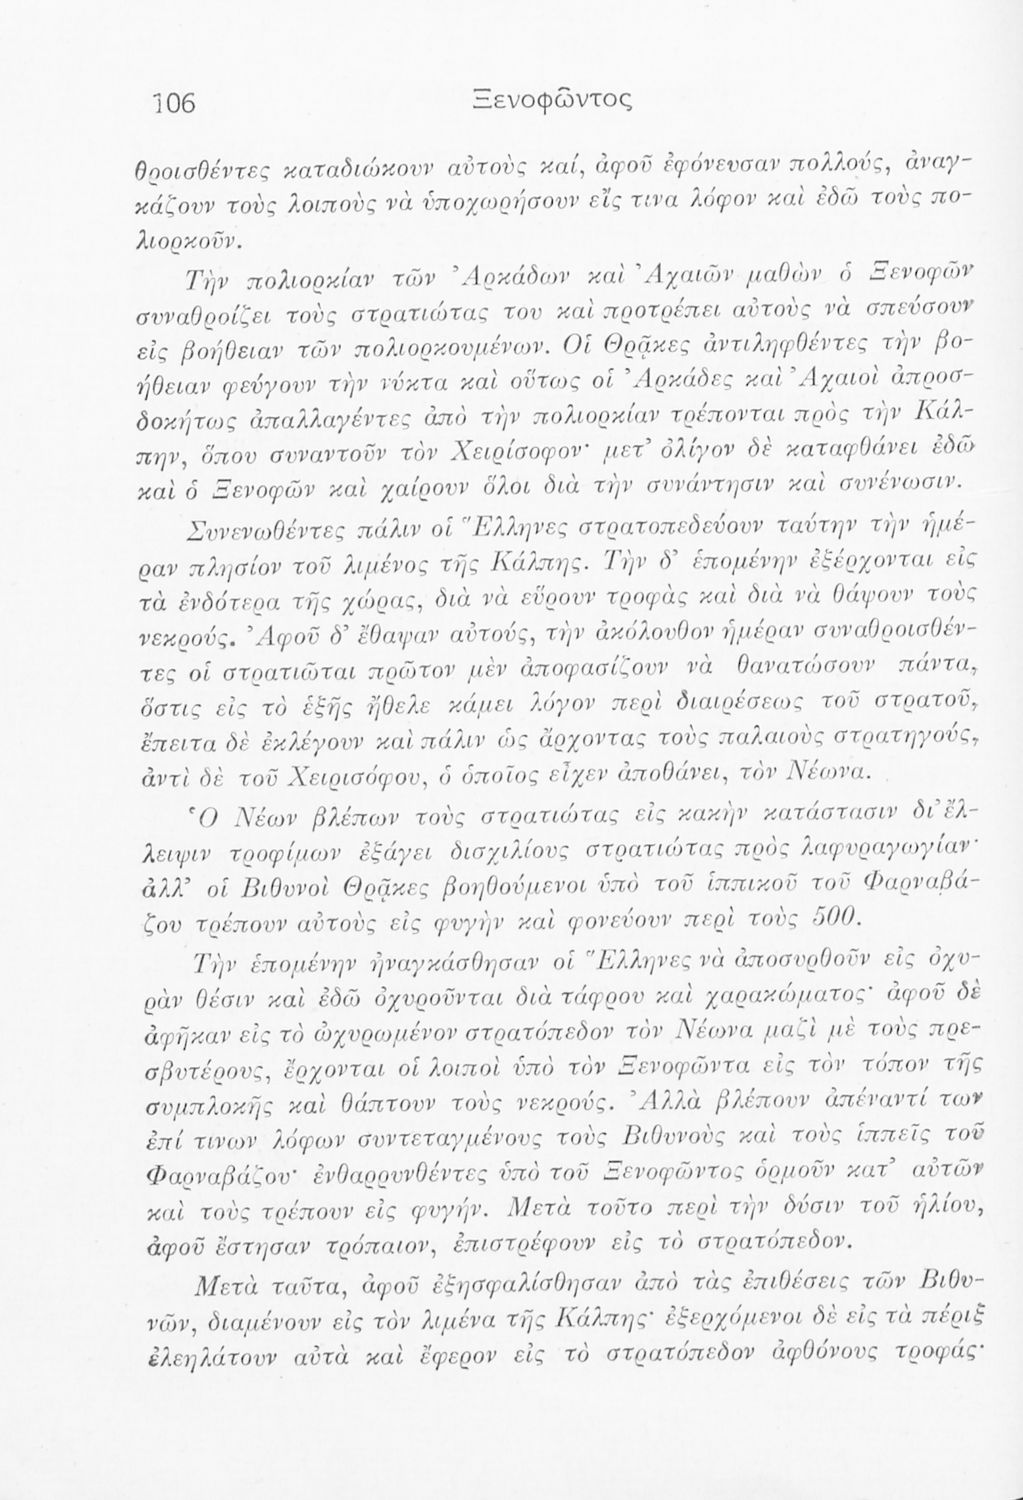 106
Ξενοφῶντος
θροισθέντες καταδιώκουν αὐτοὺς καί, ἀφοῦ ἐφόνευσαν πολλούς, ἀναγ-
κάζουν τοὺς λοιποὺς νὰ ὑποχωρήσουν εἴς τινα λόφον καὶ ἐδῶ τοὺς πο-
λιορκοῦν.
Τὴν πολιορκίαν τῶν Ἀρκάδων καὶ Ἀχαιῶν μαθὼν ὁ Ξενοφῶν
συναθροίζει τοὺς στρατιώτας του καὶ προτρέπει αὐτοὺς νὰ σπεύσουν
εἰς βοήθειαν τῶν πολιορκουμένων. Οἱ Θρᾷκες ἀντιληφθέντες τὴν βο-
ήθειαν φεύγουν τὴν νύκτα καὶ οὕτως οἱ Ἀρκάδες καὶ Ἀχαιοὶ ἀπροσ-
δοκήτως ἀπαλλαγέντες ἀπὸ τὴν πολιορκίαν τρέπονται πρὸς τὴν Κάλ-
πην, ὅπου συναντοῦν τὸν Χειρίσοφον· μετ’ ὀλίγον δὲ καταφθάνει ἐδῶ
καὶ ὁ Ξενοφῶν καὶ χαίρουν ὅλοι διὰ τὴν συνάντησιν καὶ συνένωσιν.
Συνενωθέντες πάλιν οἱ Ἕλληνες στρατοπεδεύουν ταύτην τὴν ἡμέ-
ραν πλησίον τοῦ λιμένος τῆς Κάλπης. Τὴν δ’ ἑπομένην ἐξέρχονται εἰς
τὰ ἐνδότερα τῆς χώρας, διὰ νὰ εὕρουν τροφὰς καὶ διὰ νὰ θάψουν τοὺς
νεκρούς. Ἀφοῦ δ’ ἔθαψαν αὐτούς, τὴν ἀκόλουθον ἡμέραν συναθροισθέν-
τες οἱ στρατιῶται πρῶτον μὲν ἀποφασίζουν νὰ θανατώσουν πάντα,
ὅστις εἰς τὸ ἑξῆς ἤθελε κάμει λόγον περὶ διαιρέσεως τοῦ στρατοῦ,
ἔπειτα δὲ ἐκλέγουν καὶ πάλιν ὡς ἄρχοντας τοὺς παλαιοὺς στρατηγούς,
ἀντὶ δὲ τοῦ Χειρισόφου, ὁ ὁποῖος εἶχεν ἀποθάνει, τὸν Νέωνα.
Ὁ Νέων βλέπων τοὺς στρατιώτας εἰς κακὴν κατάστασιν δι’ ἔλ-
λειψιν τροφίμων ἐξάγει δισχιλίους στρατιώτας πρὸς λαφυραγωγίαν·
ἀλλ’ οἱ Βιθυνοὶ Θρᾷκες βοηθούμενοι ὑπὸ τοῦ ἱππικοῦ τοῦ Φαρναβά-
ζου τρέπουν αὐτοὺς εἰς φυγὴν καὶ φονεύουν περὶ τοὺς 500.
Τὴν ἑπομένην ἠναγκάσθησαν οἱ Ἕλληνες νὰ ἀποσυρθοῦν εἰς ὀχυ-
ρὰν θέσιν καὶ ἐδῶ ὀχυροῦνται διὰ τάφρου καὶ χαρακώματος· ἀφοῦ δὲ
ἀφῆκαν εἰς τὸ ὠχυρωμένον στρατόπεδον τὸν Νέωνα μαζὶ μὲ τοὺς πρε-
σβυτέρους, ἔρχονται οἱ λοιποὶ ὑπὸ τὸν Ξενοφῶντα εἰς τὸν τόπον τῆς
συμπλοκῆς καὶ θάπτουν τοὺς νεκρούς. Ἀλλὰ βλέπουν ἀπέναντί των
ἐπί τινων λόφων συντεταγμένους τοὺς Βιθυνοὺς καὶ τοὺς ἱππεῖς τοῦ
Φαρναβάζου· ἐνθαρρυνθέντες ὑπὸ τοῦ Ξενοφῶντος ὁρμοῦν κατ’ αὐτῶν
καὶ τοὺς τρέπουν εἰς φυγήν. Μετὰ τοῦτο περὶ τὴν δύσιν τοῦ ἡλίου,
ἀφοῦ ἔστησαν τρόπαιον, ἐπιστρέφουν εἰς τὸ στρατόπεδον.
Μετὰ ταῦτα, ἀφοῦ ἐξησφαλίσθησαν ἀπὸ τὰς ἐπιθέσεις τῶν Βιθυ-
νῶν, διαμένουν εἰς τὸν λιμένα τῆς Κάλπης· ἐξερχόμενοι δὲ εἰς τὰ πέριξ
ἐλεηλάτουν αὐτὰ καὶ ἔφερον εἰς τὸ στρατόπεδον ἀφθόνους τροφάς·